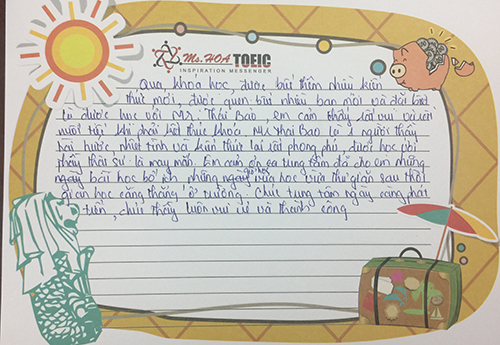 Ms.HOA TOEIC
INSPIRATION MESSENGER
Qua khóa học, được biết thêm nhiều kiến
thức mới, được quen biết nhiều bạn mới và đặc biệt
là được học với Mr. Thái Bảo, em cảm thấy rất vui và
khi phải kết thúc khóa. Mr Thái Bảo là 1 người thầy
hài hước, nhiệt tình và kiến thức lại rất phong phú, được học với
thầy thật sự là may mắn. Em cảm ơn ea trung tâm đã cho em những
ngày bài học bổ ích, những ngày giờ vừa học vừa thư giãn sau thời
gian học căng thẳng ở trường. Chúc trung tâm ngày càng phát
triển, chúc thầy luôn vui vẻ và thành công